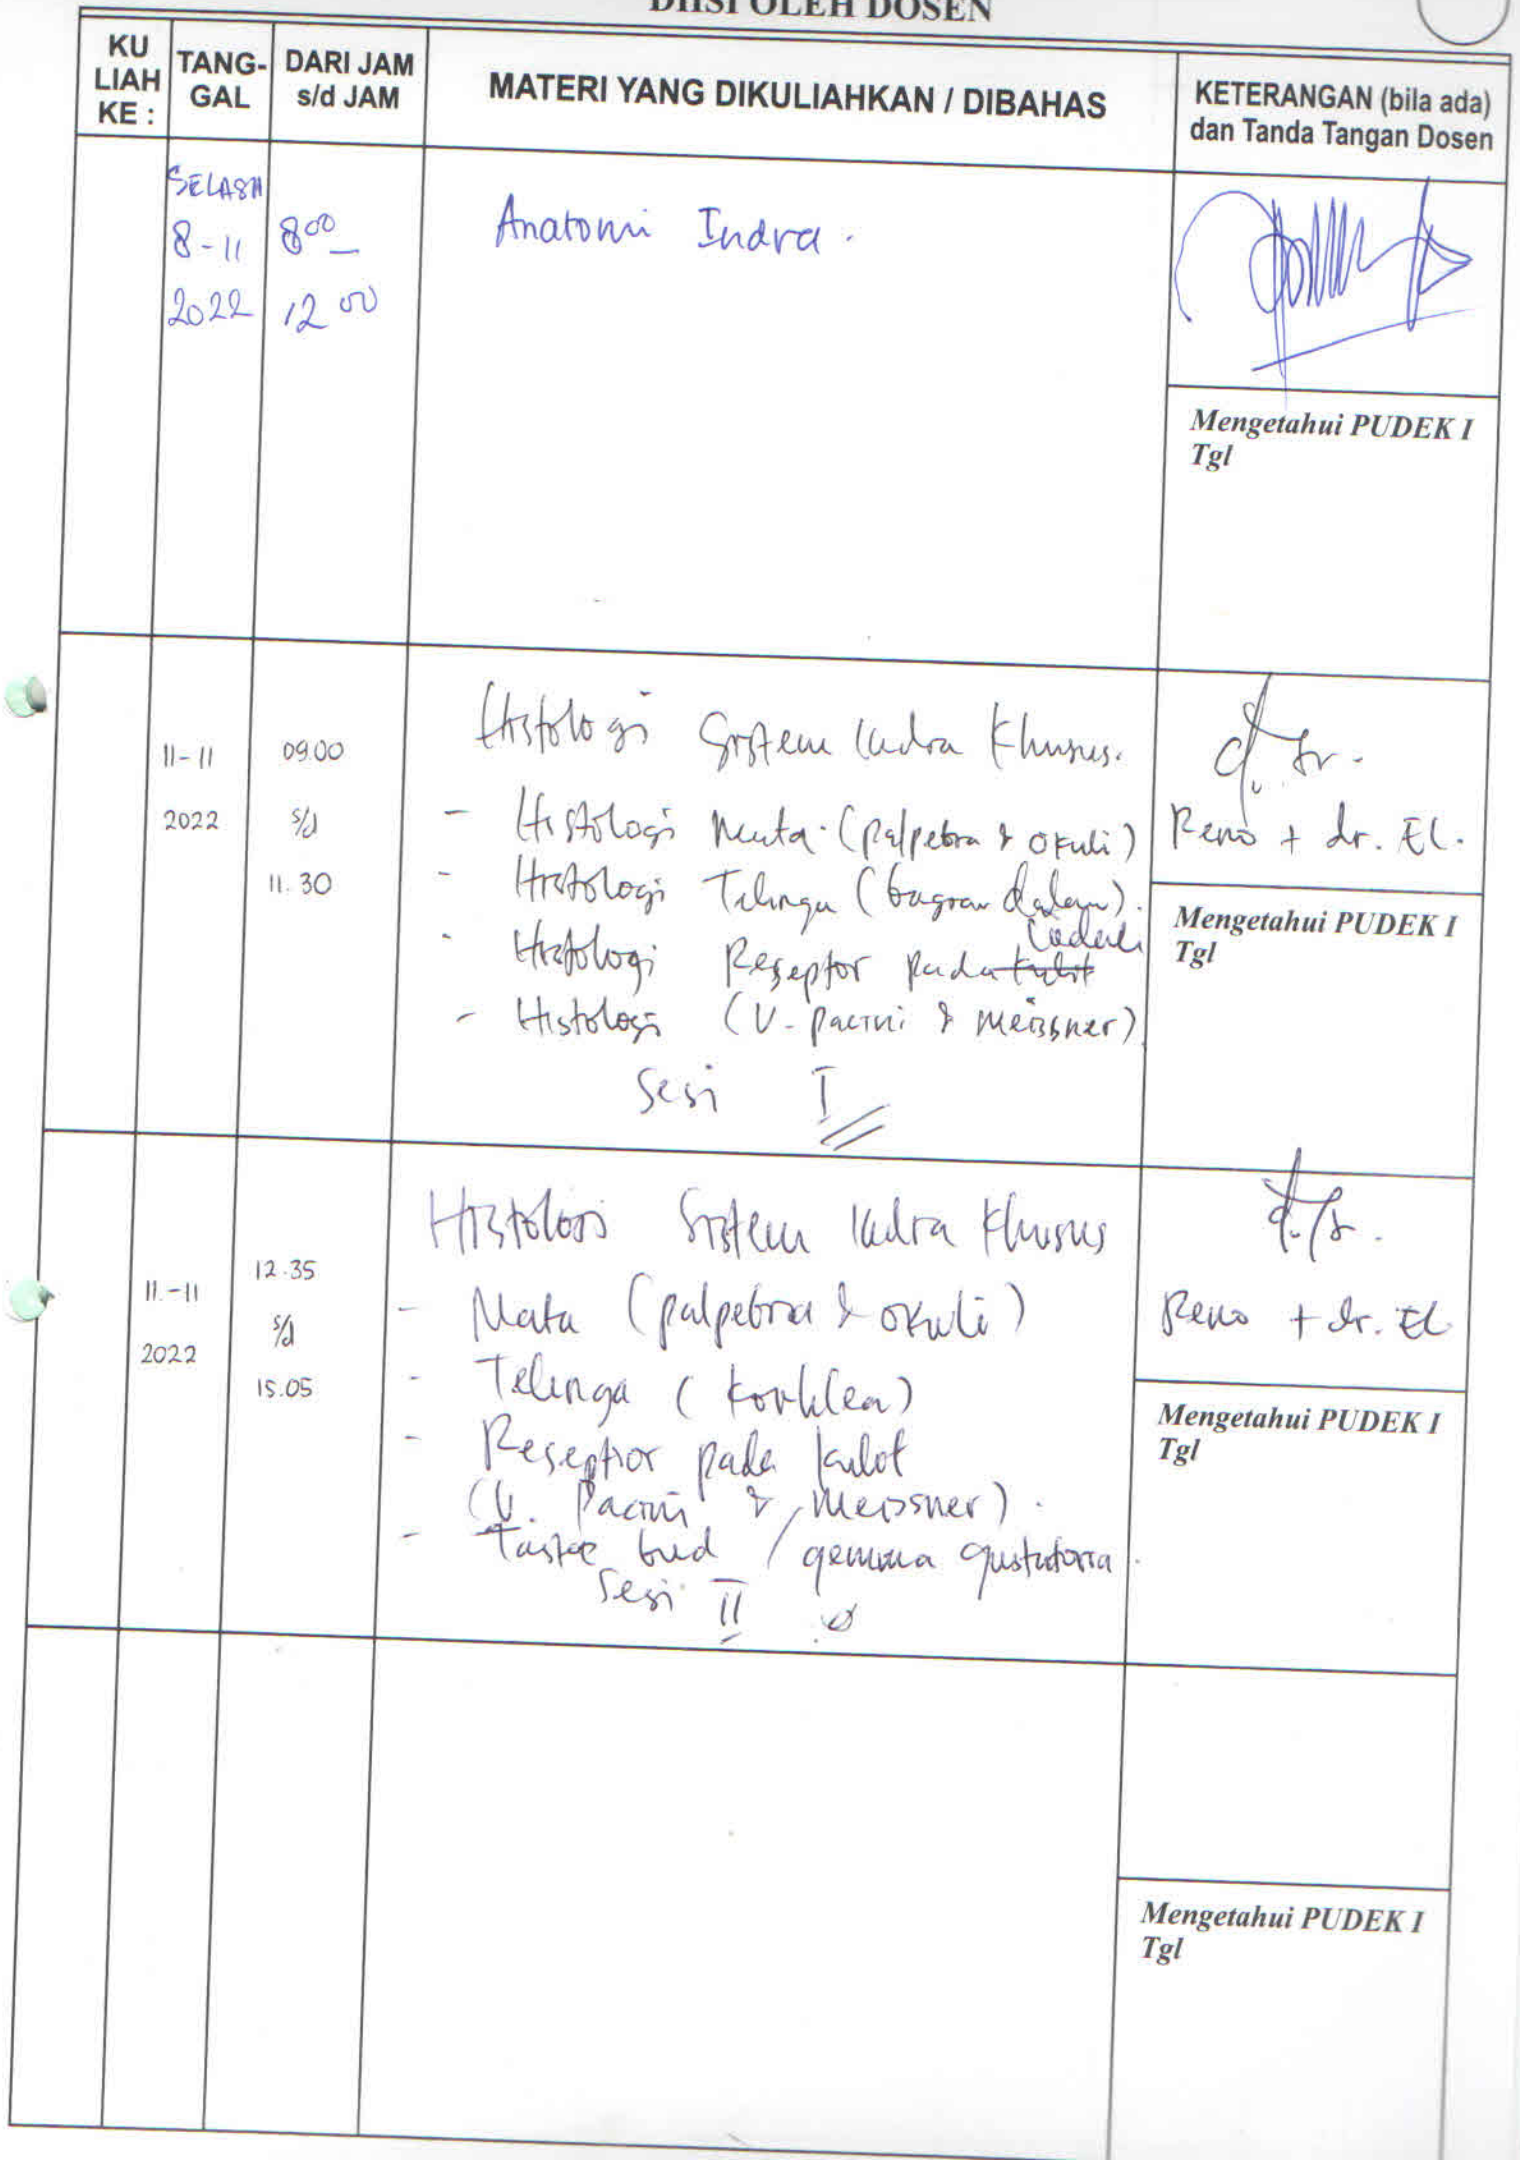 DIISI OLEH DOSEN
KU LIAH KE :
TANG-GAL
DARI JAM s/d JAM
MATERI YANG DIKULIAHKAN / DIBAHAS
KETERANGAN (bila ada) dan Tanda Tangan Dosen
SELASA
8-11
2022
8 00 –
12 00
Anatomi Indra.
Mengetahui PUDEK I
Tgl
11-11
2022
09.00
s/d
11.30
Histologi Sistem Indra Khusus.
- Histologi Mata (palpebra & okuli)
- Histologi Telinga (bagian dalam).
- Histologi Reseptor pada kulit
- Histologi (V. pacini & meissner)
Sesi I
Reno + dr. EL.
Mengetahui PUDEK I
Tgl
11-11
2022
12.35
s/d
15.05
Histologi Sistem Indra Khusus
- Mata (palpebra & okuli)
- Telinga (koklea)
- Reseptor pada kulit
(V. Pacini & Meissner).
- Taste bud / gemma gustatoria.
Sesi II
Reno + dr. EL
Mengetahui PUDEK I
Tgl
Mengetahui PUDEK I
Tgl